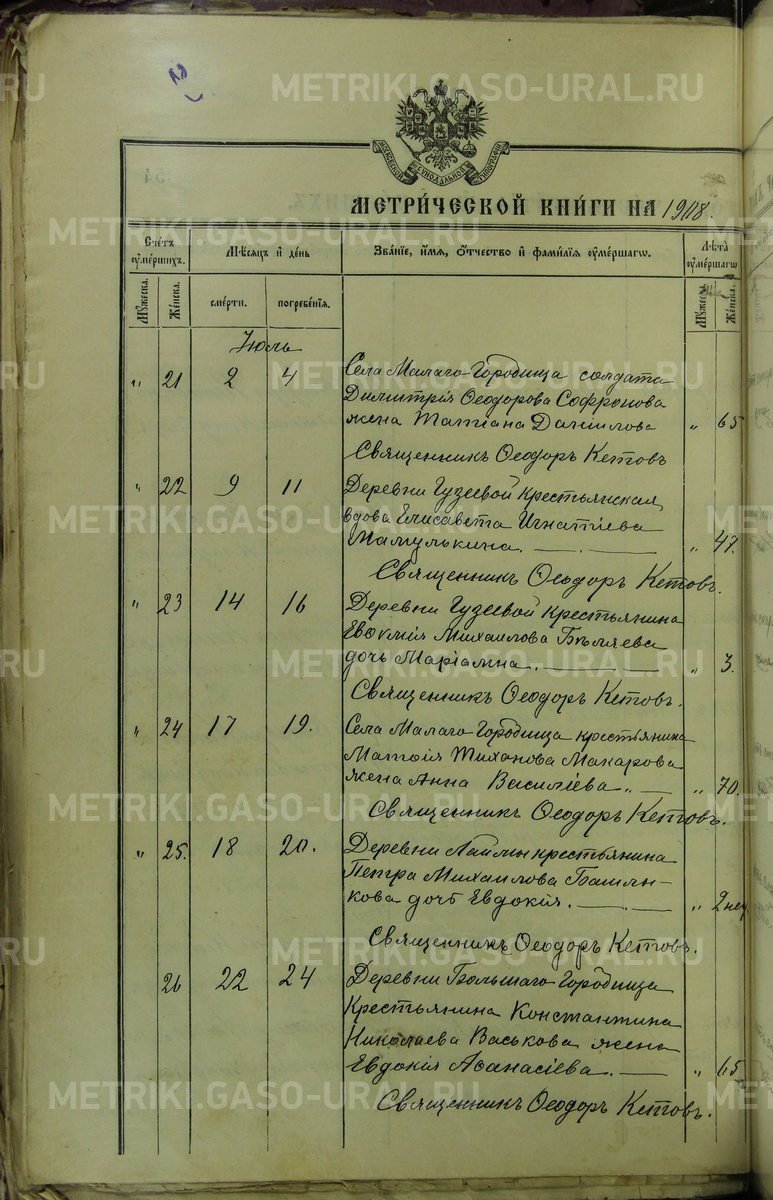 METRIKI.GASO-URAL.RU
МОСКОВСКОЙ СѴНОДАЛЬНОЙ ТИПОГРАФІИ
МЕТРИ́ЧЕСКОЙ КНИ́ГИ НА 1908.
Сче́тъ ѹме́ршихъ.
Мѣ́сяцъ и де́нь
Зва́нїе, и́мѧ, Ѻ҆́тчество и фами́лїѧ ѹме́ршагѡ.
Лѣ́та ѹме́ршагѡ
Мꙋ́жеска.
Же́нска.
сме́рти.
погребе́нїѧ.
Мꙋ́жеска
Же́нска.
Іюль
" 21 2 4 Села Малаго-Городища солдата
Димитрія Ѳеодорова Софронова
жена Татіана Даніилова " 65
Священникъ Ѳеодоръ Кетовъ
" 22 9 11 Деревни Гузеевой крестьянская
вдова Елисавета Игнатіева
Мамулькина. " 47.
Священникъ Ѳеодоръ Кетовъ.
" 23 14 16 Деревни Гузеевой крестьянина
Евѳимія Михаилова Бѣляева
дочь Маріамна. " 3.
Священникъ Ѳеодоръ Кетовъ.
" 24 17 19. Села Малаго-Городища крестьянина
Матѳія Тиханова Макарова
жена Анна Василіева. " 70.
Священникъ Ѳеодоръ Кетовъ.
" 25. 18 20. Деревни Лаймы крестьянина
Петра Михаилова Башлы-
кова дочь Евдокія. " 2 нед
Священникъ Ѳеодоръ Кетовъ.
26 22 24 Деревни Большаго-Городища
Крестьянина Константина
Николаева Васькова жена
Евдокія Аѳанасіева. " 65
Священникъ Ѳеодоръ Кетовъ.